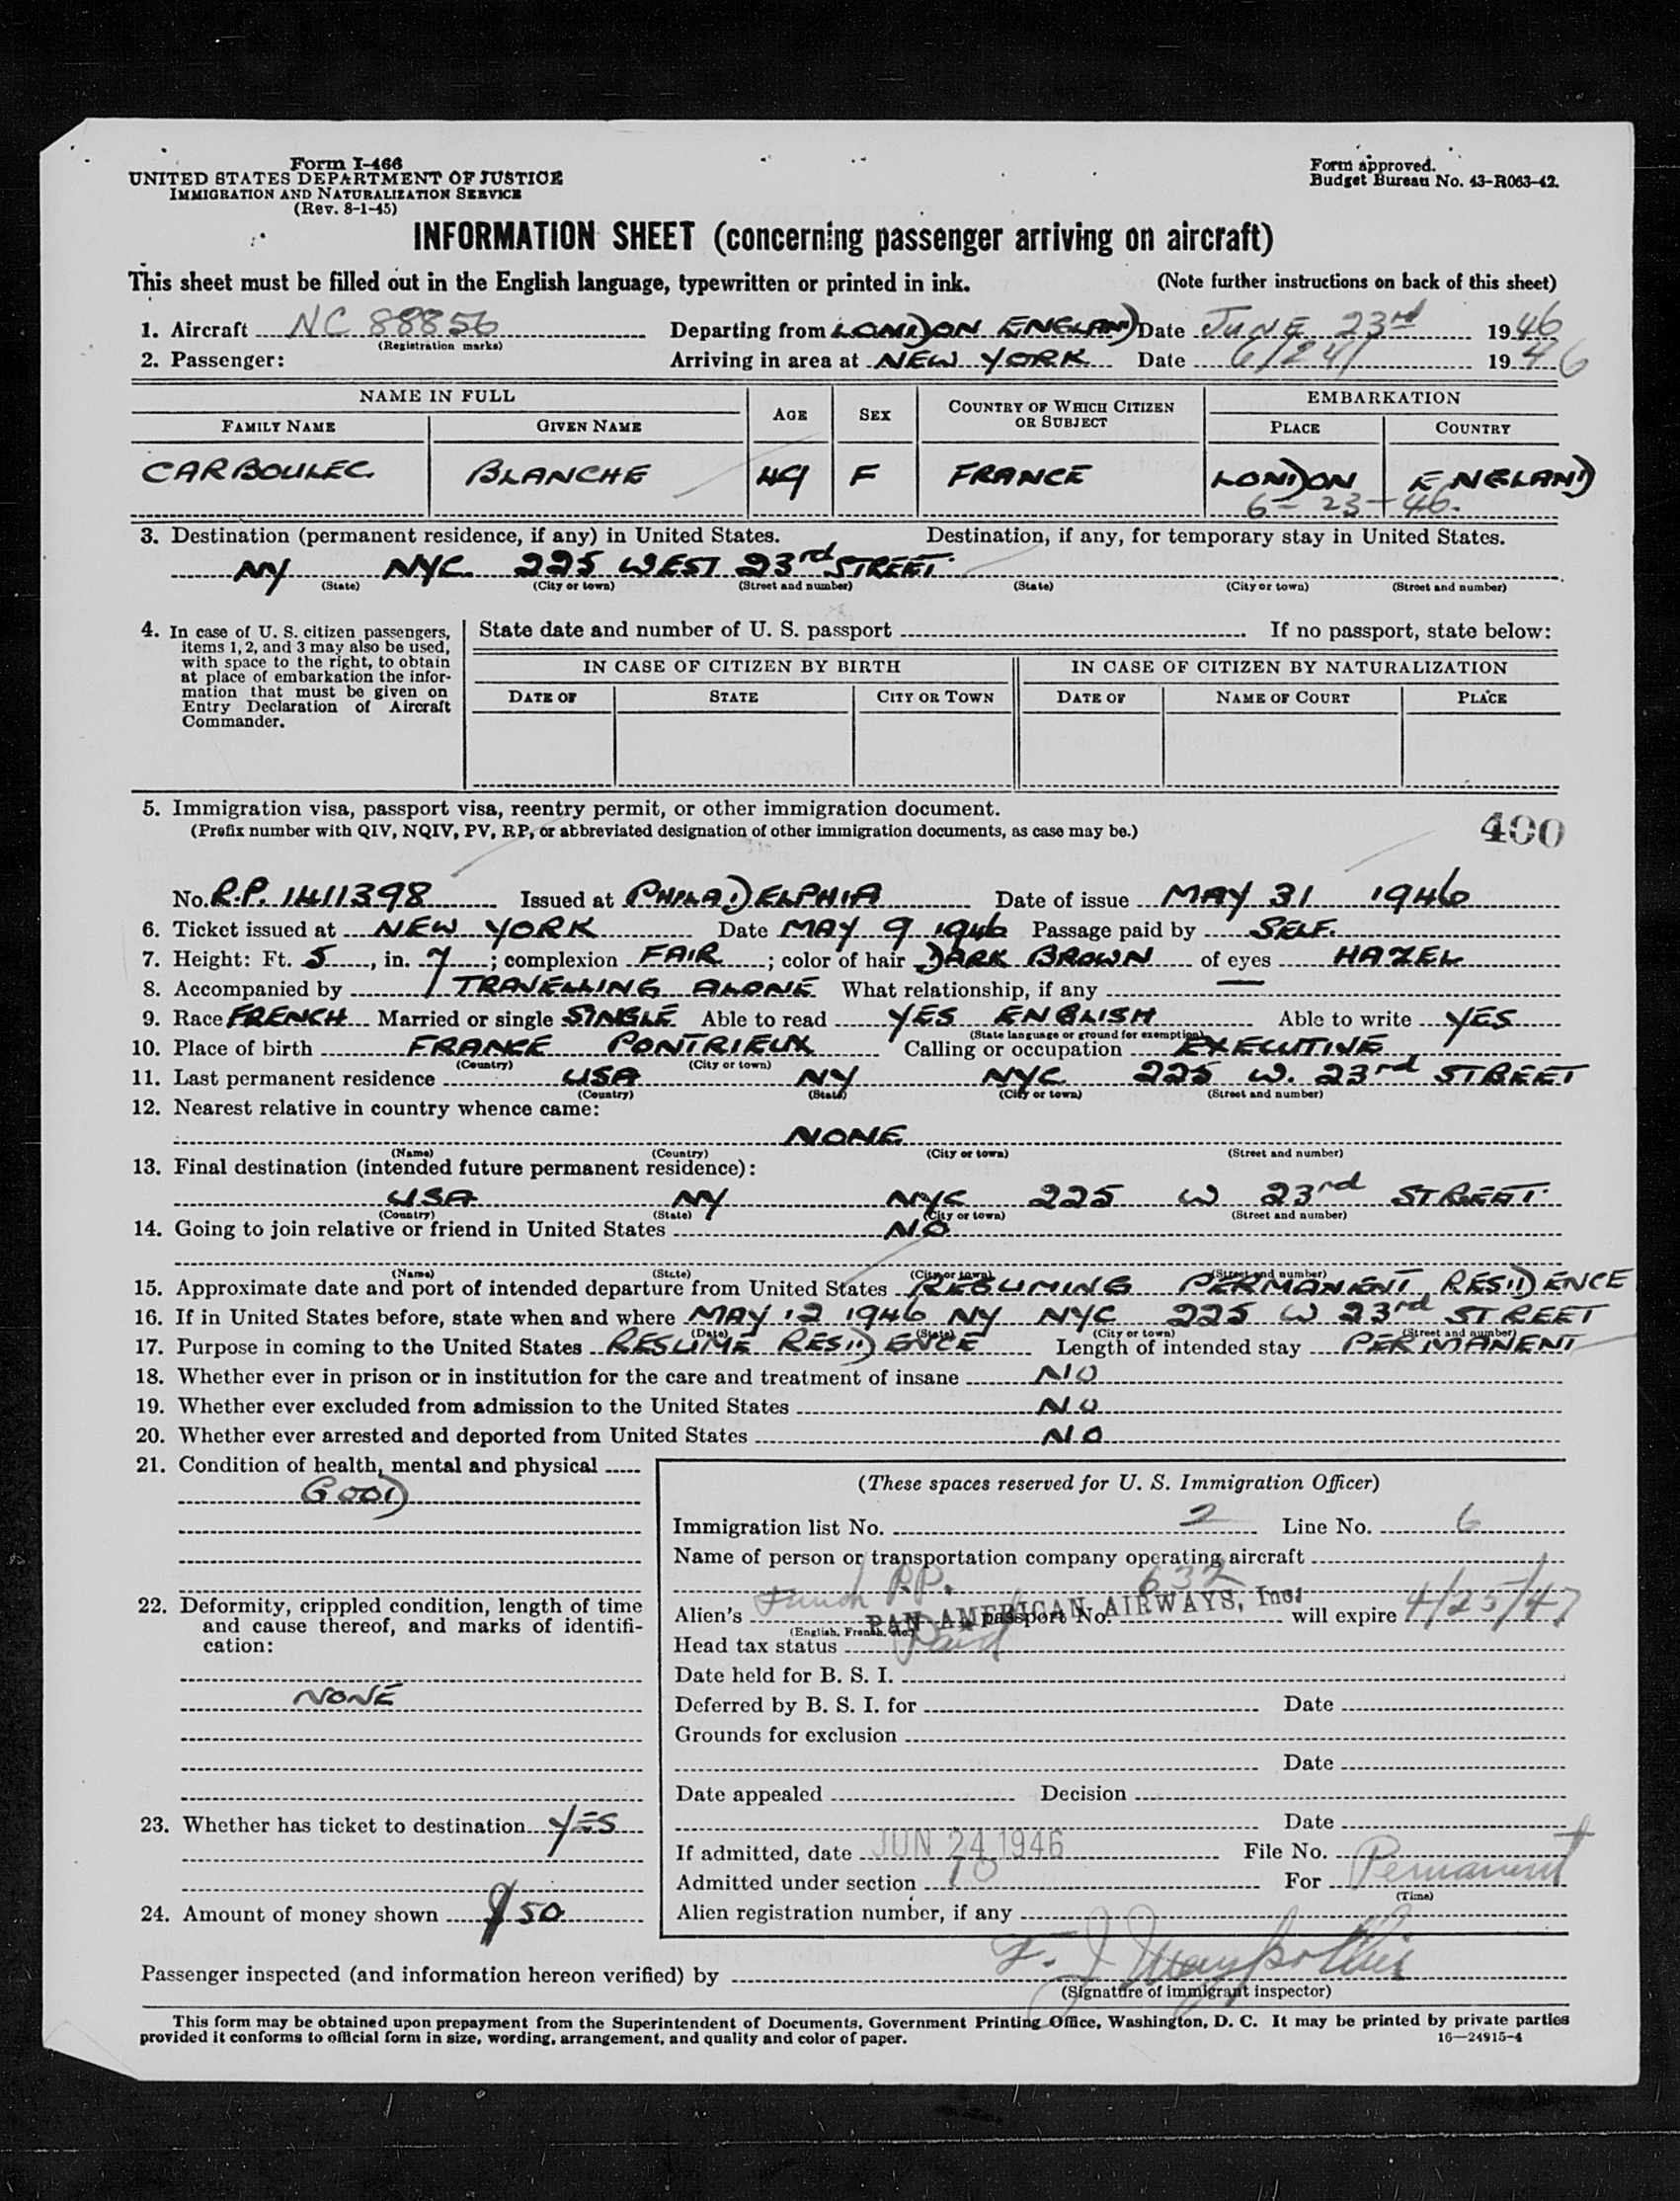 Form I-466
UNITED STATES DEPARTMENT OF JUSTICE
IMMIGRATION AND NATURALIZATION SERVICE
(Rev. 8-1-45)
Form approved.
Budget Bureau No. 43-R063-42.
INFORMATION SHEET (concerning passenger arriving on aircraft)
This sheet must be filled out in the English language, typewritten or printed in ink. (Note further instructions on back of this sheet)
1. Aircraft NC 88856 Departing from LONDON ENGLAND Date JUNE 23rd 1946
(Registration marks)
2. Passenger: Arriving in area at NEW YORK Date 6/24/ 1946
NAME IN FULL AGE SEX COUNTRY OF WHICH CITIZEN OR SUBJECT EMBARKATION
FAMILY NAME GIVEN NAME PLACE COUNTRY
CARBOULEC BLANCHE 49 F FRANCE LONDON ENGLAND
6-23-46.
3. Destination (permanent residence, if any) in United States. Destination, if any, for temporary stay in United States.
NY NYC 225 WEST 23rd STREET
(State) (City or town) (Street and number) (State) (City or town) (Street and number)
4. In case of U. S. citizen passengers, items 1, 2, and 3 may also be used, with space to the right, to obtain at place of embarkation the information that must be given on Entry Declaration of Aircraft Commander.
State date and number of U. S. passport If no passport, state below:
IN CASE OF CITIZEN BY BIRTH IN CASE OF CITIZEN BY NATURALIZATION
DATE OF STATE CITY OR TOWN DATE OF NAME OF COURT PLACE
5. Immigration visa, passport visa, reentry permit, or other immigration document.
(Prefix number with QIV, NQIV, PV, RP, or abbreviated designation of other immigration documents, as case may be.)
400
No. R.P. 1411398 Issued at PHILADELPHIA Date of issue MAY 31 1946
6. Ticket issued at NEW YORK Date MAY 9 1946 Passage paid by SELF.
7. Height: Ft. 5, in. 7; complexion FAIR; color of hair DARK BROWN of eyes HAZEL
8. Accompanied by TRAVELLING ALONE What relationship, if any —
9. Race FRENCH Married or single SINGLE Able to read YES ENGLISH Able to write YES
(State language or ground for exemption)
10. Place of birth FRANCE PONTRIEUX Calling or occupation EXECUTIVE
(Country) (City or town)
11. Last permanent residence USA NY NYC 225 W. 23rd STREET
(Country) (State) (City or town) (Street and number)
12. Nearest relative in country whence came:
NONE
(Name) (Country) (City or town) (Street and number)
13. Final destination (intended future permanent residence):
USA NY NYC 225 W 23rd STREET.
(Country) (State) (City or town) (Street and number)
14. Going to join relative or friend in United States NO
(Name) (State) (City or town) (Street and number)
15. Approximate date and port of intended departure from United States RESUMING PERMANENT RESIDENCE
16. If in United States before, state when and where MAY 12 1946 NY NYC 225 W 23rd STREET
(Date) (State) (City or town) (Street and number)
17. Purpose in coming to the United States RESUME RESIDENCE Length of intended stay PERMANENT
18. Whether ever in prison or in institution for the care and treatment of insane NO
19. Whether ever excluded from admission to the United States NO
20. Whether ever arrested and deported from United States NO
21. Condition of health, mental and physical
GOOD
22. Deformity, crippled condition, length of time and cause thereof, and marks of identification:
NONE
23. Whether has ticket to destination YES
24. Amount of money shown $50
(These spaces reserved for U. S. Immigration Officer)
Immigration list No. 2 Line No. 6
Name of person or transportation company operating aircraft
PAN AMERICAN AIRWAYS, Inc.
Alien's French R.P. passport No. 632 will expire 4/25/47
(English, French, etc.)
Head tax status Paid
Date held for B. S. I.
Deferred by B. S. I. for Date
Grounds for exclusion
Date
Date appealed Decision
Date
If admitted, date JUN 24 1946 File No.
Admitted under section 10 For Permanent
(Time)
Alien registration number, if any
Passenger inspected (and information hereon verified) by
(Signature of immigrant inspector)
This form may be obtained upon prepayment from the Superintendent of Documents, Government Printing Office, Washington, D. C. It may be printed by private parties
provided it conforms to official form in size, wording, arrangement, and quality and color of paper. 16—24915-4